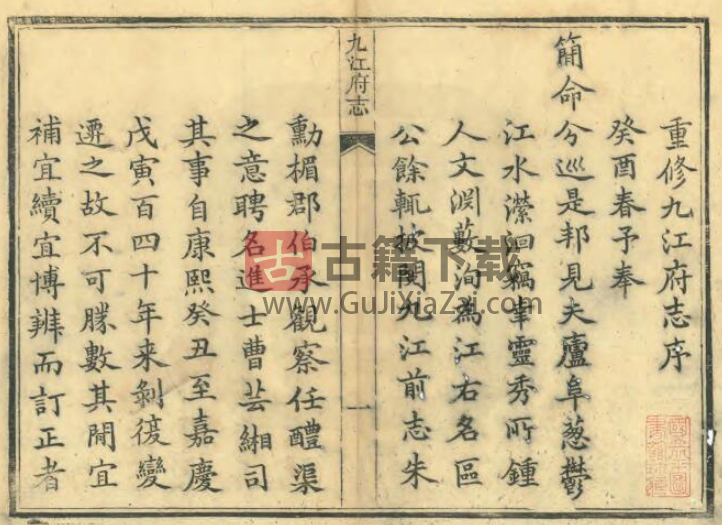 重修九江府志序
癸酉春予奉
簡命分巡是邦見夫廬阜葱鬱
江水瀠洄竊幸靈秀所鍾
人文淵藪洵為江右名區
公餘輒披閱九江前志朱
九江府志
一
勳楣郡伯承觀察任醴渠
之意聘名進士曹芸緗司
其事自康熙癸丑至嘉慶
戊寅百四十年来剝復變
遷之故不可勝數其閒宜
補宜續宜博辨而訂正者
古 古籍下载
www.GuJiXiaZai.com